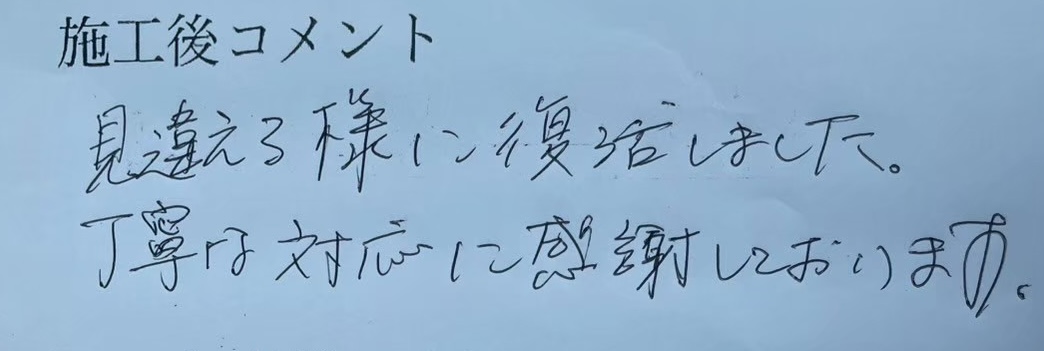 施工後コメント
見違える様に復活しました。
丁寧な対応に感謝しております。